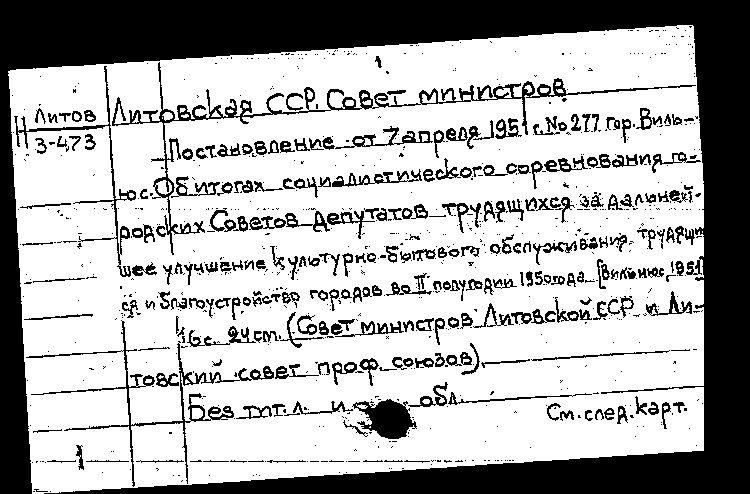 1.
Н Литов
3-473
Литовская ССР. Совет министров
Постановление от 7 апреля 1951 г. № 277 гор. Виль-
нюс. Об итогах социалистического соревнования го-
родских Советов депутатов трудящихся за дальней-
шее улучшение культурно-бытового обслуживания трудящи
ся и благоустройство городов во II полугодии 1950 года. [Вильнюс, 1951]
16 с. 24 см. (Совет министров Литовской ССР и Ли-
товский совет проф. союзов).
Без тит. л. и обл.
См. след. карт.
1